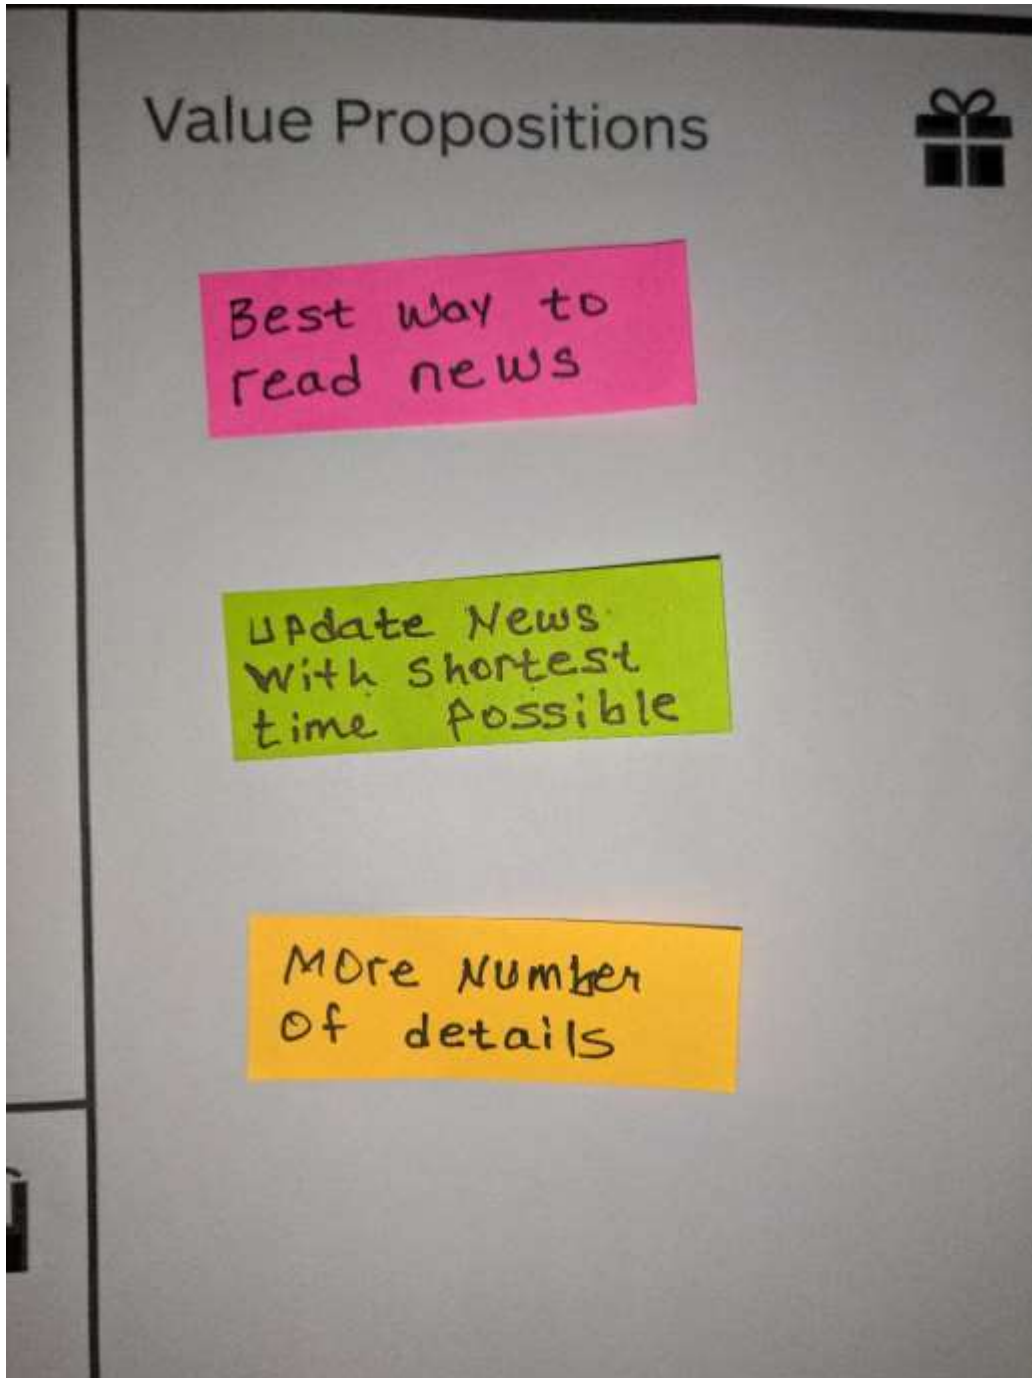 Value Propositions
Best way to
read news
Update News
With shortest
time possible
More Number
Of details